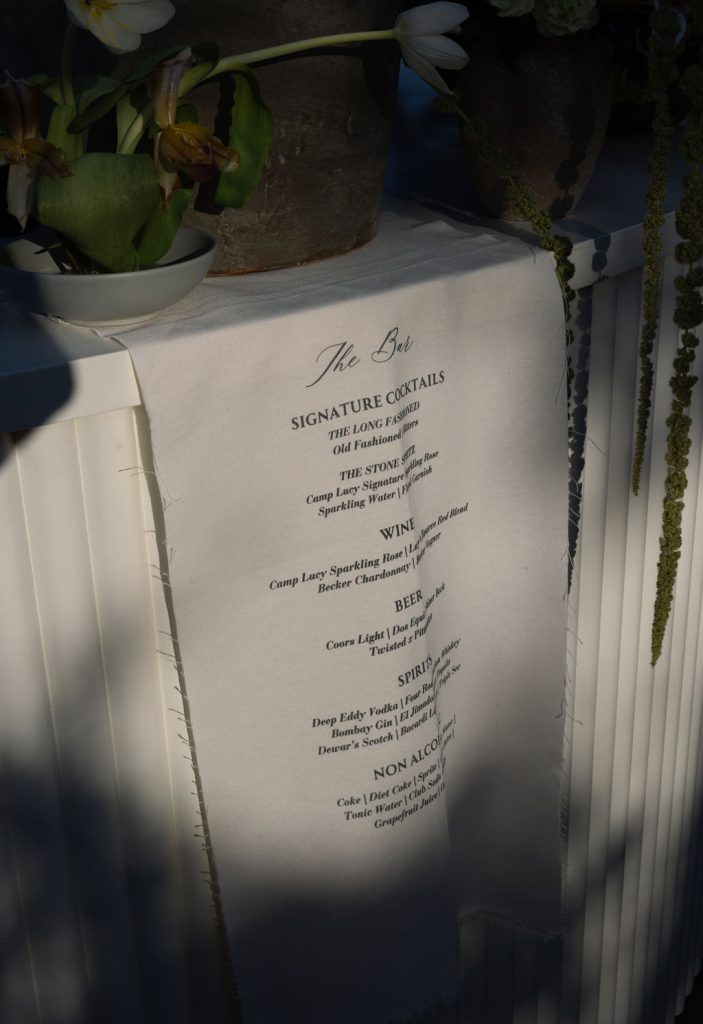 The Bar
SIGNATURE COCKTAILS
THE LONG FASHIONED
Old Fashioned Bitters
THE STONE SPITZ
Camp Lucy Signature Sparkling Rose
Sparkling Water | Garnish
WINE
Camp Lucy Sparkling Rose | Reserve Red Blend
Becker Chardonnay |
BEER
Coors Light | Dos Equis
Twisted x
SPIRITS
Deep Eddy Vodka | Four Whiskey
Bombay Gin | El Jimador Tequila
Dewar's Scotch | Bacardi Triple Sec
NON
Coke | Diet Coke | Sprite |
Tonic Water | Club Soda
Grapefruit Juice |